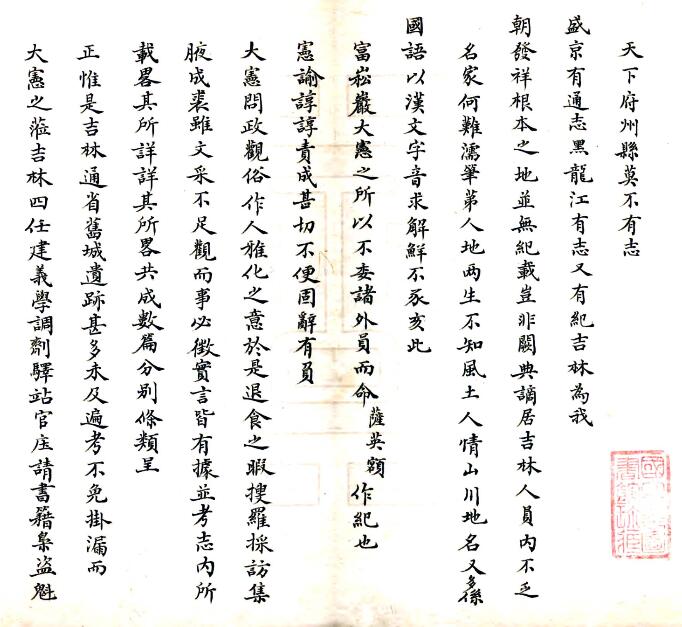 天下府州縣莫不有志
盛京有通志黑龍江有志又有紀吉林為我
朝發祥根本之地並無紀載豈非闕典謫居吉林人員內不乏
名家何難濡筆第人地两生不知風土人情山川地名又多係
國語以漢文字音求解鮮不豕亥此
富崧巖大憲之所以不委諸外員而命薩英額作紀也
憲諭諄諄責成甚切不便固辭有負
大憲問政觀俗作人雅化之意於是退食之暇搜羅採訪集
腋成裘雖文采不足觀而事必徵實言皆有據並考志內所
載畧其所詳詳其所畧共成數篇分别條類呈
正惟是吉林通省舊城遺跡甚多未及遍考不免掛漏而
大憲之蒞吉林四任建義學調劑驛站官庄請書籍梟盗魁